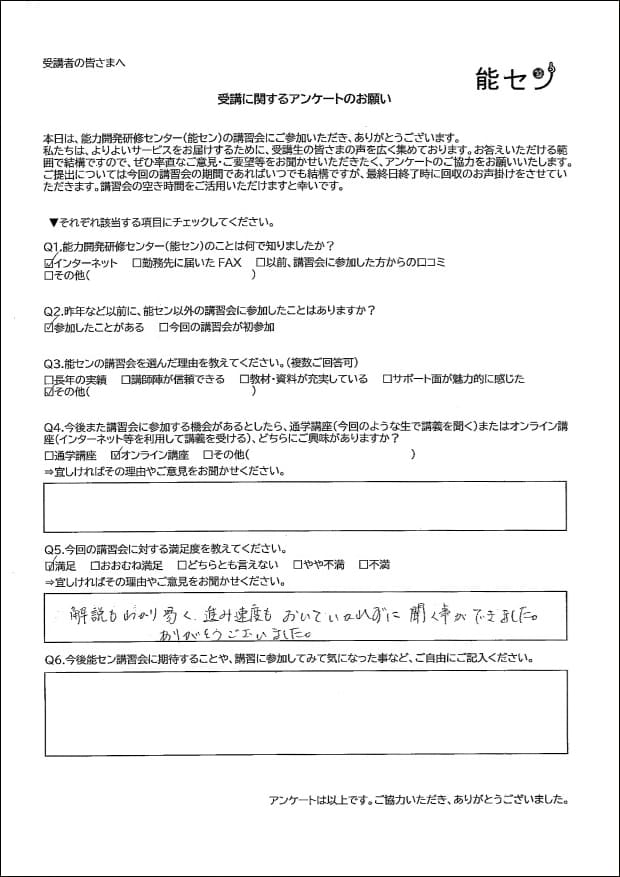 受講者の皆さまへ
能セン
受講に関するアンケートのお願い
本日は、能力開発研修センター(能セン)の講習会にご参加いただき、ありがとうございます。
私たちは、よりよいサービスをお届けするために、受講生の皆さまの声を広く集めております。お答えいただける範
囲で結構ですので、ぜひ率直なご意見・ご要望等をお聞かせいただきたく、アンケートのご協力をお願いいたします。
ご提出については今回の講習会の期間であればいつでも結構ですが、最終日終了時に回収のお声掛けをさせてい
ただきます。講習会の空き時間をご活用いただけますと幸いです。
▼それぞれ該当する項目にチェックしてください。
Q1.能力開発研修センター(能セン)のことは何で知りましたか?
☑インターネット □勤務先に届いた FAX □以前、講習会に参加した方からの口コミ
□その他( )
Q2.昨年など以前に、能セン以外の講習会に参加したことはありますか?
☑参加したことがある □今回の講習会が初参加
Q3.能センの講習会を選んだ理由を教えてください。(複数ご回答可)
□長年の実績 □講師陣が信頼できる □教材・資料が充実している □サポート面が魅力的に感じた
☑その他( )
Q4.今後また講習会に参加する機会があるとしたら、通学講座(今回のような生で講義を聞く)またはオンライン講
座(インターネット等を利用して講義を受ける)、どちらにご興味がありますか?
□通学講座 ☑オンライン講座 □その他( )
⇒宜しければその理由やご意見をお聞かせください。
Q5.今回の講習会に対する満足度を教えてください。
☑満足 □おおむね満足 □どちらとも言えない □やや不満 □不満
⇒宜しければその理由やご意見をお聞かせください。
解説もわかり易く、進み速度も おいていかれずに 聞く事ができました。
ありがとうございました。
Q6.今後能セン講習会に期待することや、講習に参加してみて気になった事など、ご自由にご記入ください。
アンケートは以上です。ご協力いただき、ありがとうございました。